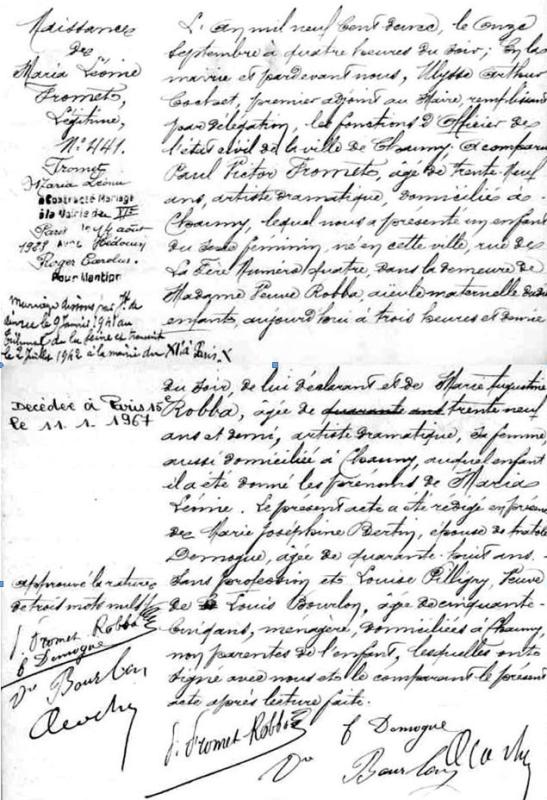 Naissance
de
Maria Léonie
Fromet,
Légitime,
N° 441.
Fromet
Maria Léonie
a Contracté Mariage
à la Mairie du
Paris le 14 août
1929 avec Hédouin
Roger Carolus.
Pour Mention
Mariage dissous
le 9 janvier 1941 au
tribunal de la Seine et transcrit
le 2 juillet 1942 à la mairie du XIe Paris.
L'an mil neuf cent douze, le onze
Septembre à quatre heures du soir ; En la
mairie et pardevant nous, Ulysse Arthur
premier adjoint au Maire, remplissant
par délégation, les fonctions d'Officier de
l'état civil de la ville de Chauny, a comparu
Paul Victor Fromet, âgé de trente-neuf
ans, artiste dramatique, domicilié à
Chauny, lequel nous a présenté un enfant
du sexe féminin, né en cette ville, rue de
La Fère Numéro quatre, dans la demeure de
Madame Veuve Robba, aïeule maternelle dudit
enfant, aujourd'hui à trois heures et demie
Décédée à Paris 15e
le 11.1.1967
du soir, de lui déclarant et de Marie Augustine
Robba, âgée de quarante ans trente neuf
ans et demi, artiste dramatique, sa femme
aussi domiciliée à Chauny, auquel enfant
il a été donné les prénoms de Maria
Léonie. Le présent acte a été rédigé en présence
de Marie Joséphine Bertin, épouse de
Demogue, âgée de quarante-huit ans.
Sans profession et Louise Pilligry, Veuve
de Louis Bourlon, âgée de cinquante-
cinq ans, ménagère, domiciliées à Chauny,
non parentes de l'enfant, lesquelles ont
signé avec nous et le comparant le présent
acte après lecture faite.
approuvé la rature
de trois mots nuls
Fromet Robba
Demogue
Ve Bourlon
Fromet Robba
Demogue
Ve Bourlon